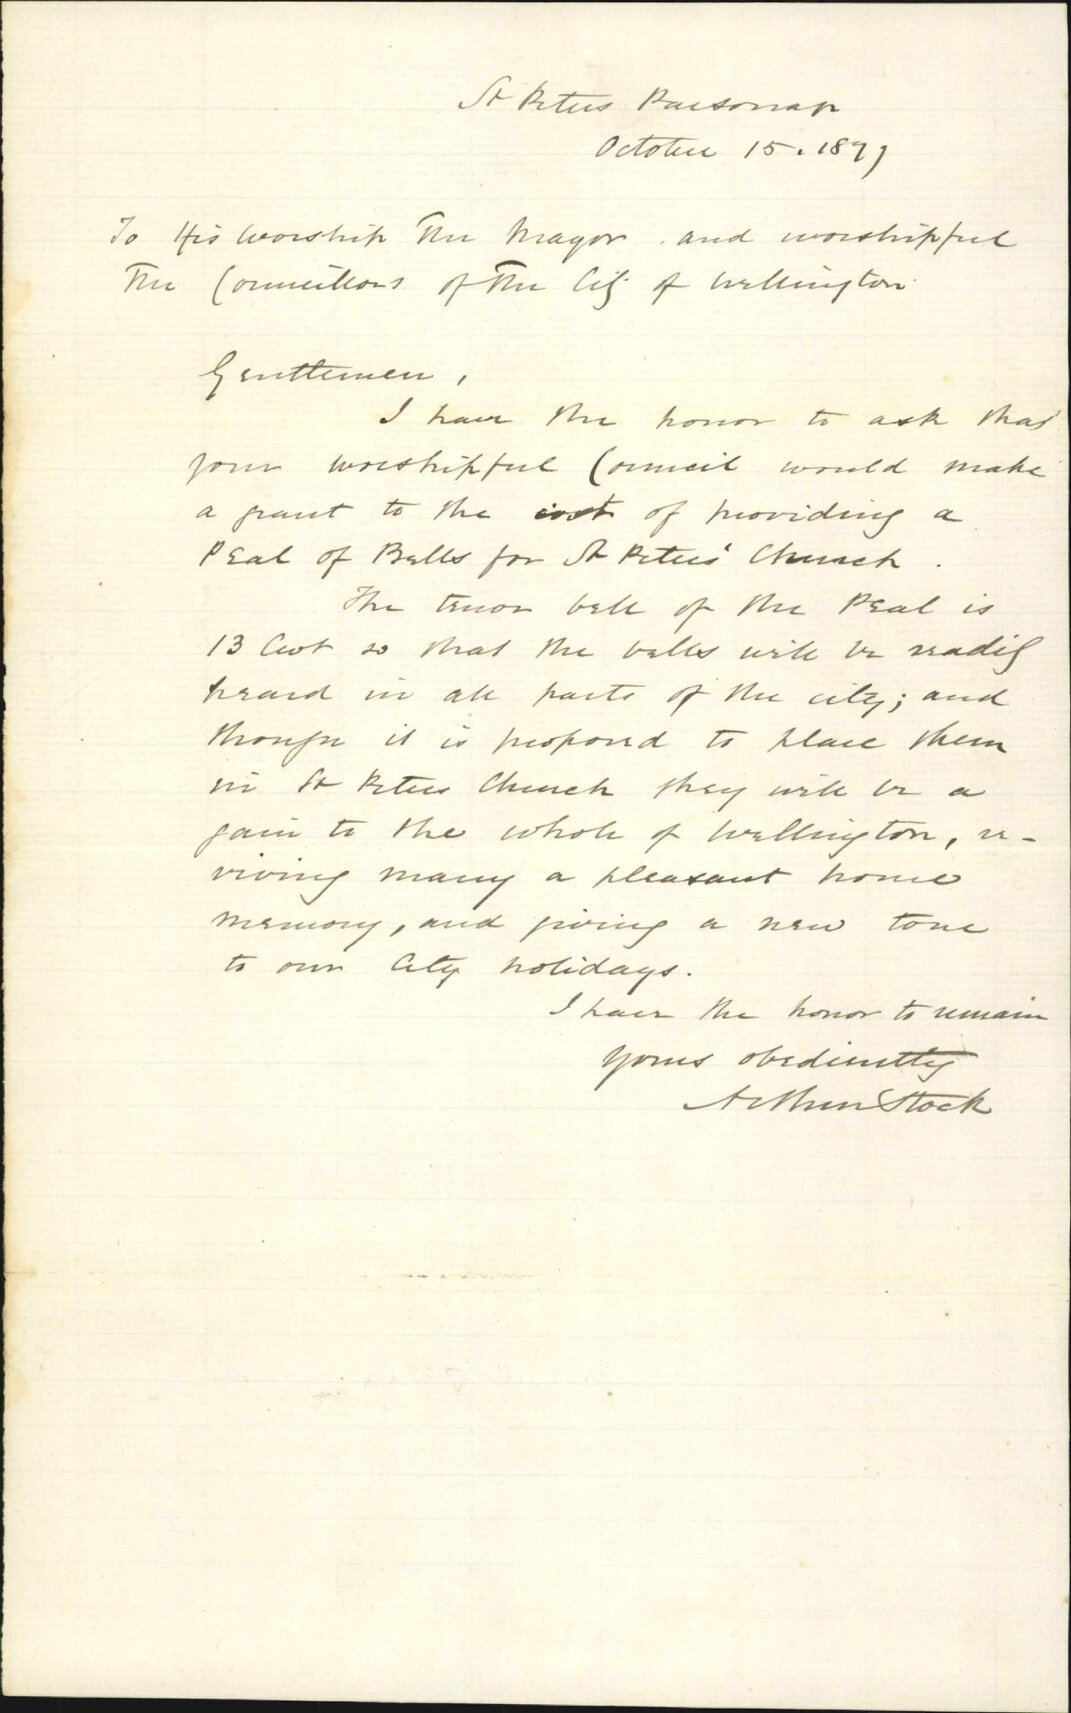 St Peters Parsonage
October 15. 1877
To His Worship The Mayor and worshipful
The Councillors of The City of Wellington
Gentlemen,
I have the honor to ask that
your worshipful Council would make
a grant to the cost of providing a
Peal of Bells for St Peters' Church.
The tenor bell of the Peal is
13 Cwt so that the bells will be readily
heard in all parts of the city; and
though it is proposed to place them
in St Peters Church they will be a
gain to the whole of Wellington, re-
viving many a pleasant home
memory, and giving a new tone
to our City holidays.
I have the honor to remain
Yours obediently
Arthur Stock